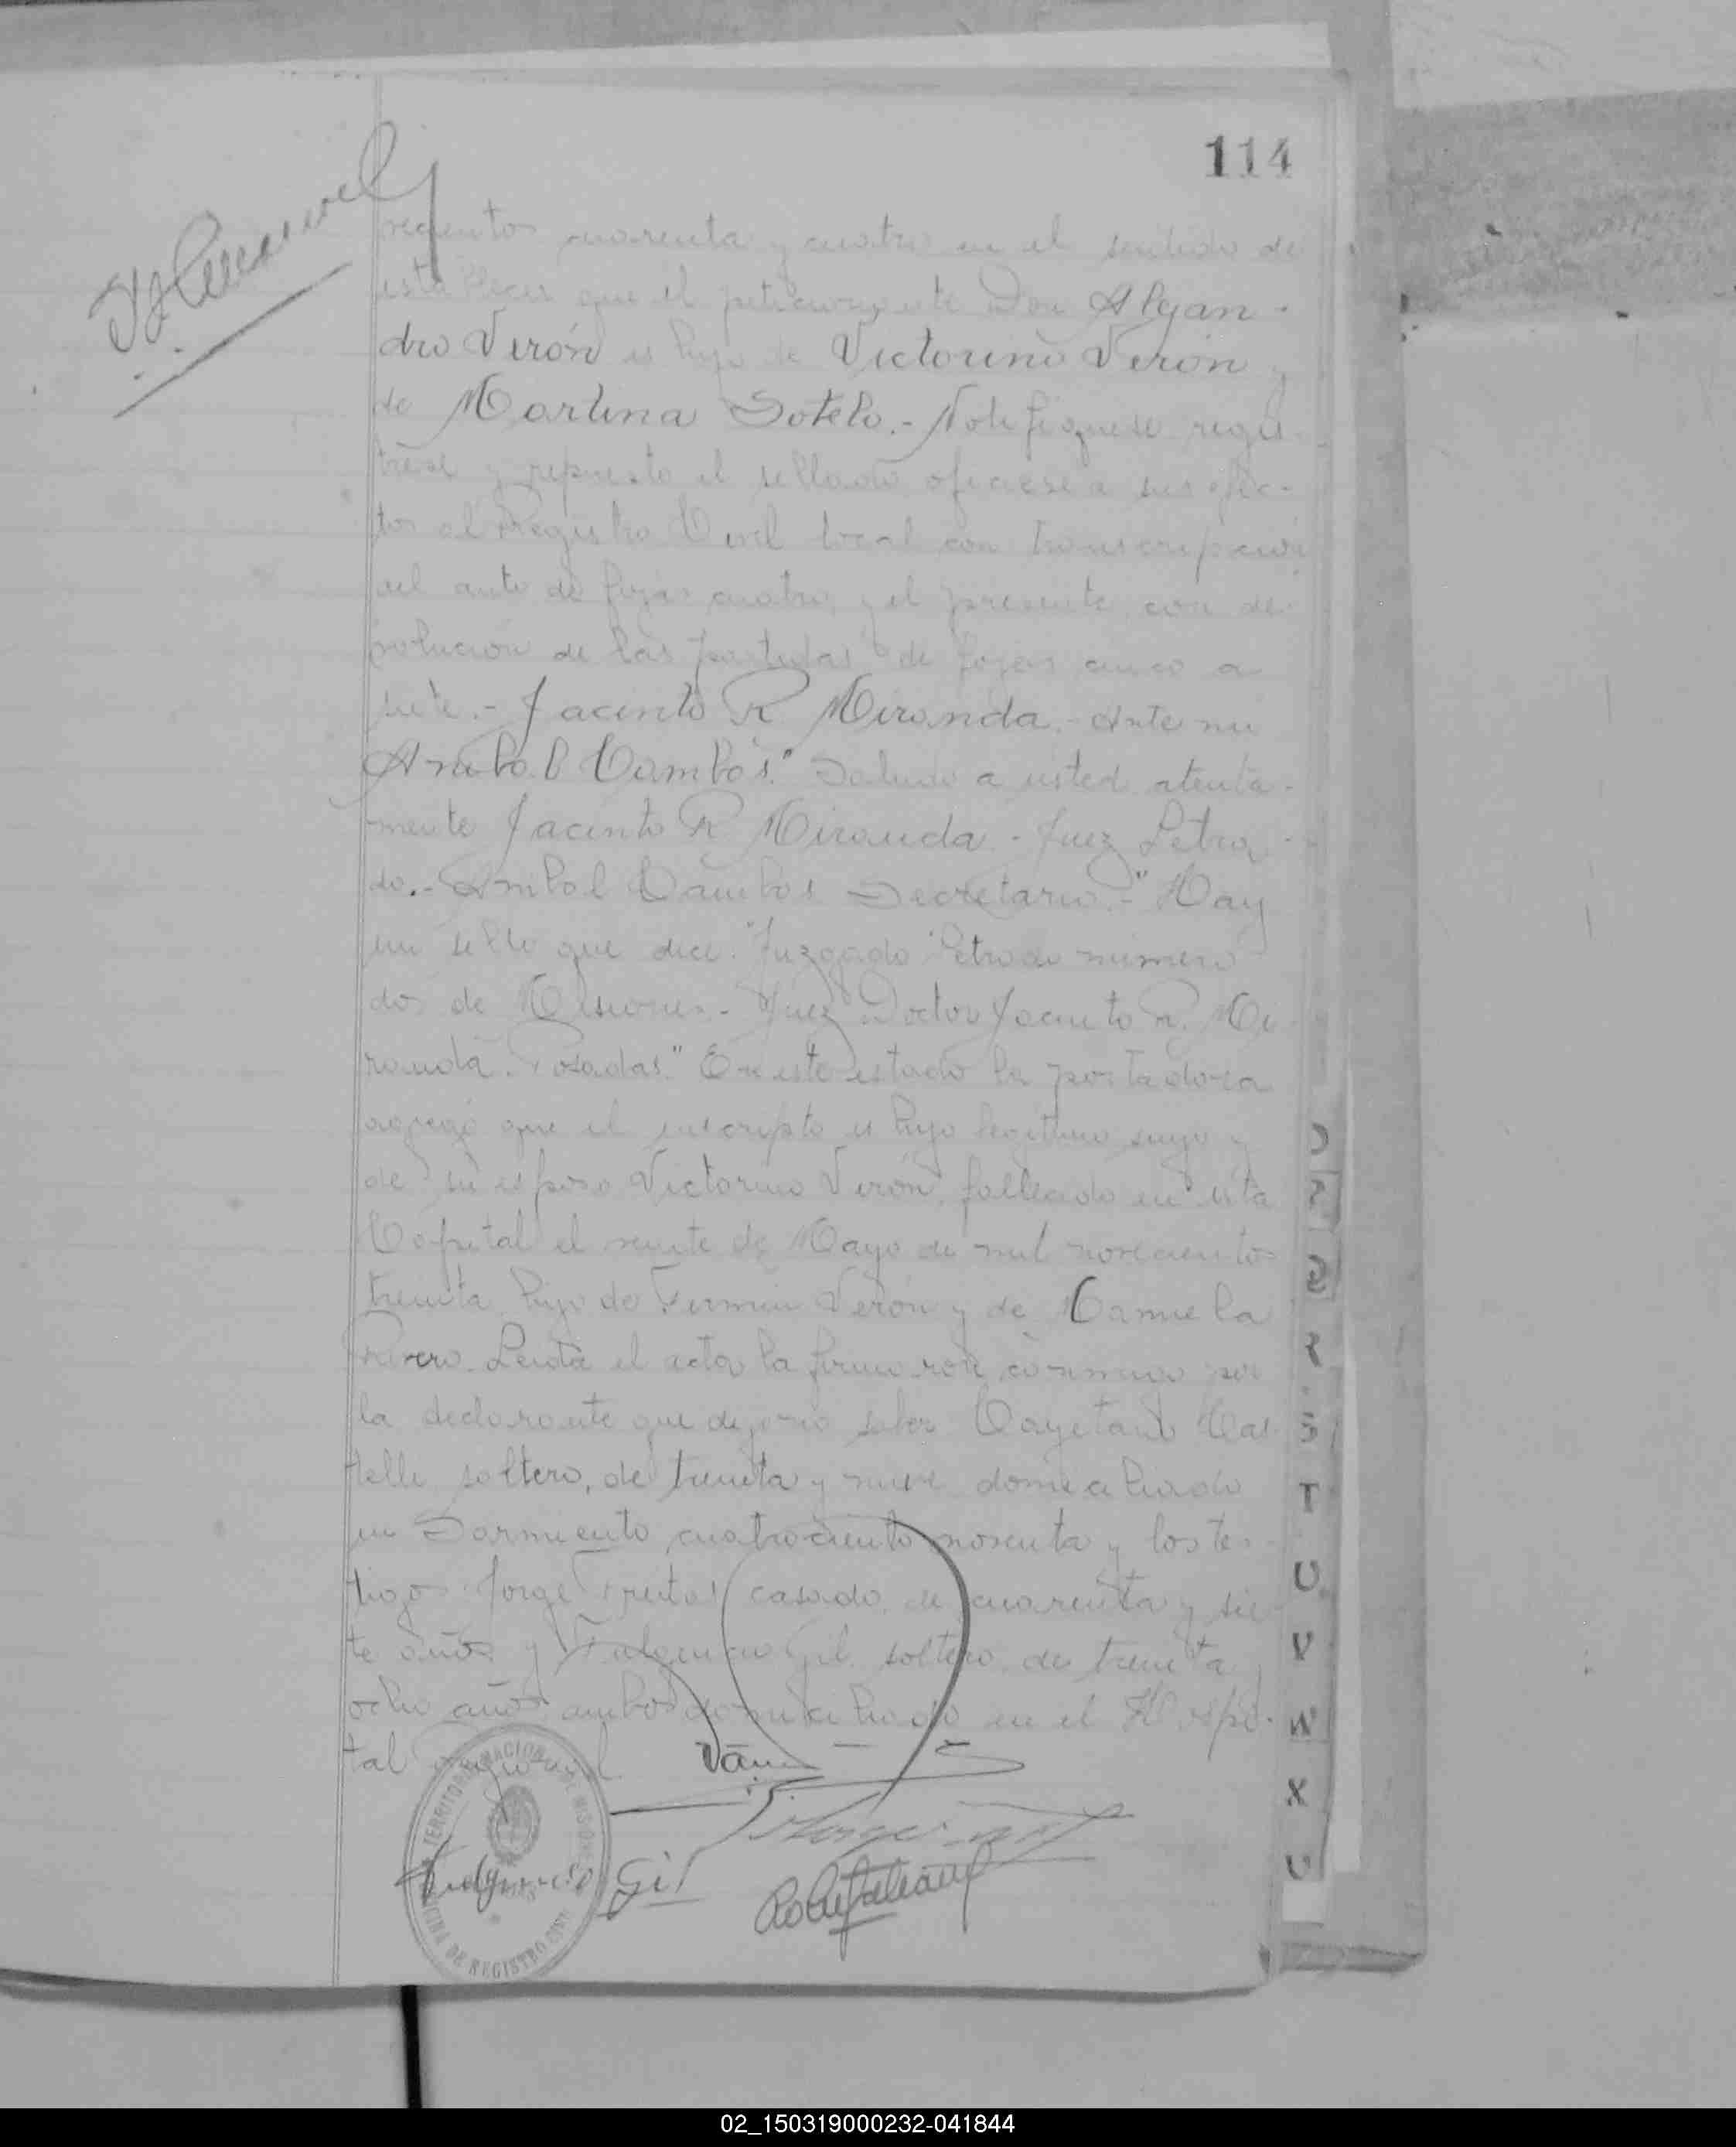 114
recientos cuarenta y cuatro en el sentido de
establecer que el peticionante Don Alejan-
dro Verón es hijo de Victorino Verón y
de Martina Sotelo.- Notifíquese regis-
trese y repuesto el sellado ofíciese a sus efec-
tos al Registro Civil local con transcripción
del auto de fojas cuatro y el presente con de-
volución de las partidas de fojas cinco a
siete.- Jacinto R Miranda.- Ante mi
Anibal Cambas." Saludo a usted atenta-
mente Jacinto R Miranda - Juez Letra-
do.- Anibal Cambas Secretario.-" Hay
un sello que dice: "Juzgado Letrado número
dos de Misiones.- Juez Doctor Jacinto R. Mi-
randa. Posadas." En este estado la portadora
agregó que el inscripto es hijo legítimo suyo y
de su esposo Victorino Verón, fallecido en esta
Capital el veinte de Mayo de mil novecientos
treinta hijo de Fermin Verón y de Camila
Rivero. Leida el acta la firmaron conmigo por
la declarante que dijo no saber Cayetano Cas-
telli soltero, de treinta y nueve domiciliado
en Sarmiento cuatrociento noventa y los tes-
tigos Jorge Freitas casado de cuarenta y sie-
te años y Fulgencio Gil soltero de treinta y
ocho años ambos domiciliado en el Hospi-
tal
TERRITORIO NACIONAL DE MISIONES
OFICINA DE REGISTRO CIVIL
Fulgencio Gil
S
T
U
V
W
X
02_150319000232-041844